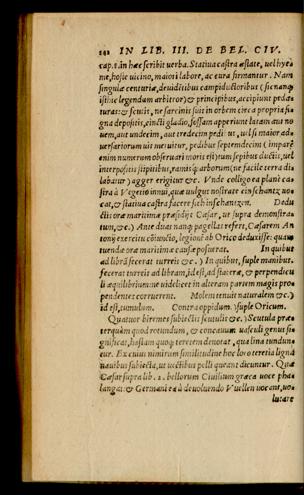 242 IN LIB. III. DE BEL. CIV.
cap. 8. in hæc scribit uerba. Statiua castra æstate, uel hye
me, hoste uicino, maiori labore, ac cura firmantur. Nam
singulæ centuriæ, diuidētibus campiductoribus (sic nanq
istihic legendam arbitror) & principibus, accipiunt peda
turas: & scutis, ne sarcinis suis in orbem circa propria si=
gna depositis, cincti gladio, fossam aperiunt latam aut no
uem, aut undecim, aut tredecim pedibus: uel si maior ad=
uersariorum uis metuitur, pedibus septemdecim (imparē
enim numerum obseruari moris est) tum sepibus ductis, uel
interpositis stipitibus, ramisq; arborum (ne facile terra di=
labatur) agger erigitur &c. Vnde colligo ea planè ca=
stra à Vegetio innui, quæ uulgus nostrate ein schantz uo=
cat, & statiua castra facere sich inschantzen. Dedu
ctis oræ maritimæ præsidijs Cæsar, ut supra demonstra
tum, &c.) Ante duas nanq; pagellas refert, Cæsarem An
tonij exercitu cōiuncto, legionē ab Orico deduxisse: quam
tuendæ oræ maritimæ causa posuerat. In quibus
ad librā fecerat turreis &c.) In quibus, suple manibus.
fecerat turreis ad libram, id est, ad stateræ, & perpendicu
li æquilibrium: ne uidelicet in alteram partem magis pro=
pendentes corruerent. Molem tenuit naturalem &c.)
id est, tumulum. Contra oppidum.) suple Oricum.
Quatuor biremes subiectis scutulis &c.) Scutula præ=
terquàm quod rotundum, & concauum uasculi genus si=
gnificat, hastam quoq; teretem denotat, qua lina tundun=
tur. Ex cuius nimirum similitudine hoc loco teretia ligna
nauibus subiecta, ut uectibus pelli queant dicuntur. Quæ
Cæsar supra lib. 2. bellorum Ciuilium græca uoce pha=
langas: & Germani ea à deuoluendo Vuellen uocant, uo=
lutare